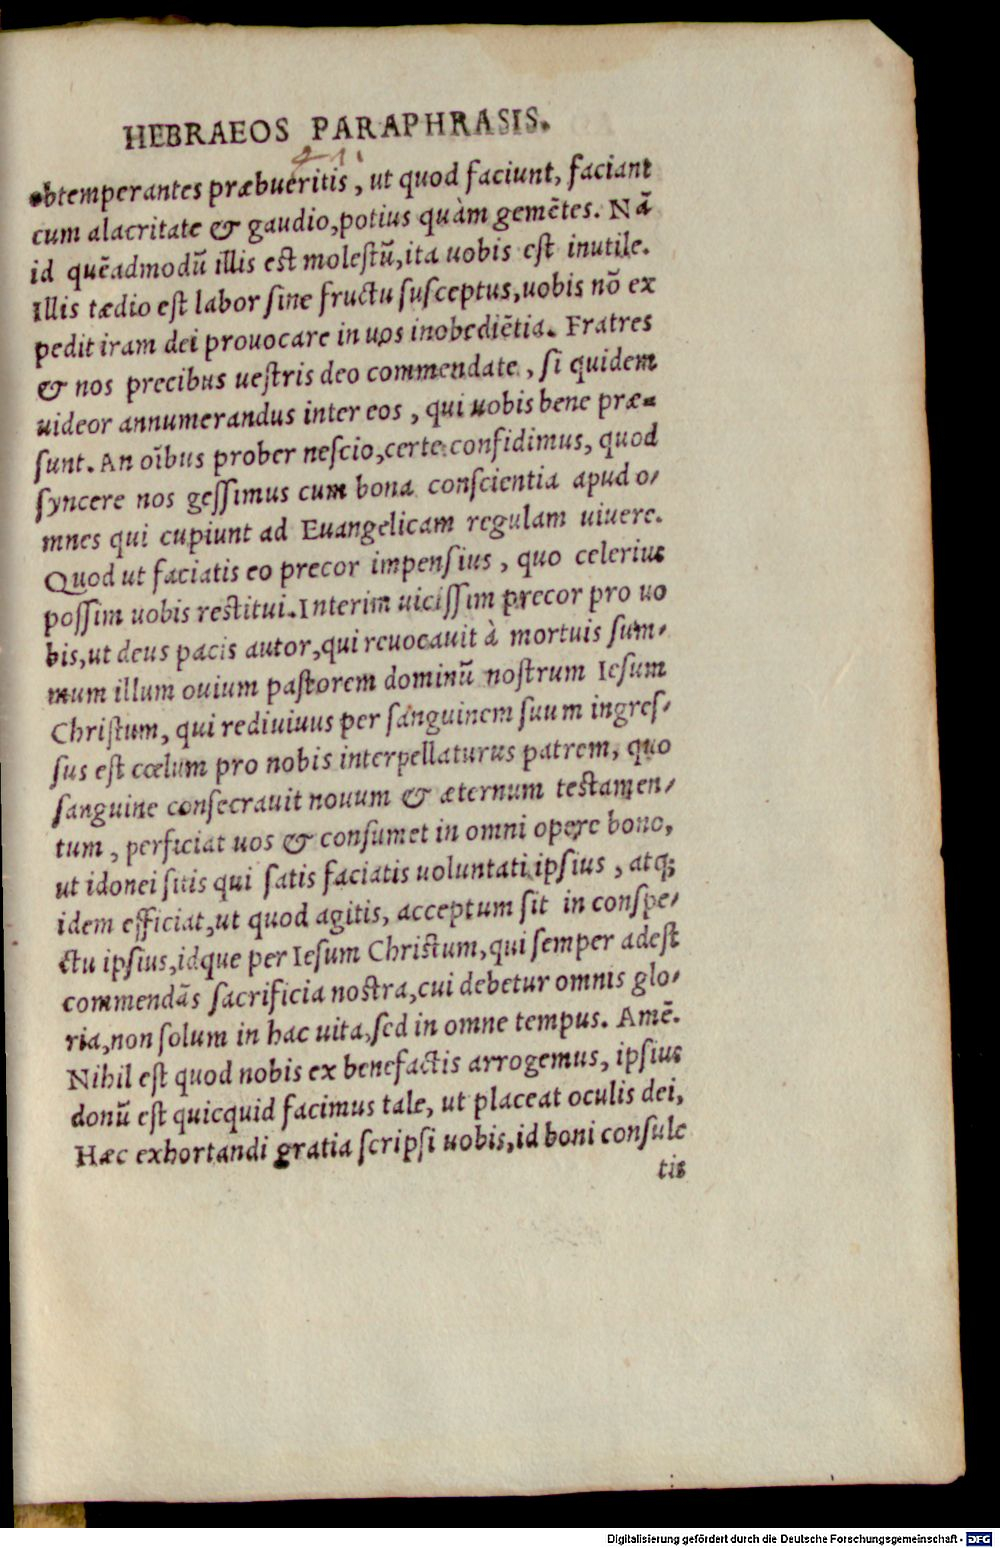 HEBRAEOS PARAPHRASIS.
obtemperantes præbueritis, ut quod faciunt, faciant
cum alacritate & gaudio, potius quàm gemẽtes. Nã
id quẽadmodũ illis est molestũ, ita uobis est inutile.
Illis tædio est labor sine fructu susceptus, uobis nõ ex
pedit iram dei prouocare in uos inobediẽtia. Fratres
& nos precibus uestris deo commendate, si quidem
uideor annumerandus inter eos, qui uobis bene præ=
sunt. An oĩbus prober nescio, certe confidimus, quod
syncere nos gessimus cum bona conscientia apud o-
mnes qui cupiunt ad Euangelicam regulam uiuere.
Quod ut faciatis eo precor impensius, quo celerius
possim uobis restitui. Interim uicissim precor pro uo
bis, ut deus pacis autor, qui reuocauit à mortuis sum-
mum illum ouium pastorem dominũ nostrum Iesum
Christum, qui rediuiuus per sanguinem suum ingres-
sus est cœlum pro nobis interpellaturus patrem, quo
sanguine consecrauit nouum & æternum testamen-
tum, perficiat uos & consumet in omni opere bono,
ut idonei sitis qui satis faciatis uoluntati ipsius, atq;
idem efficiat, ut quod agitis, acceptum sit in conspe-
ctu ipsius, idque per Iesum Christum, qui semper adest
commendãs sacrificia nostra, cui debetur omnis glo-
ria, non solum in hac uita, sed in omne tempus. Amẽ.
Nihil est quod nobis ex benefactis arrogemus, ipsius
donũ est quicquid facimus tale, ut placeat oculis dei,
Hæc exhortandi gratia scripsi uobis, id boni consule
tis
Digitalisierung gefördert durch die Deutsche Forschungsgemeinschaft - DFG